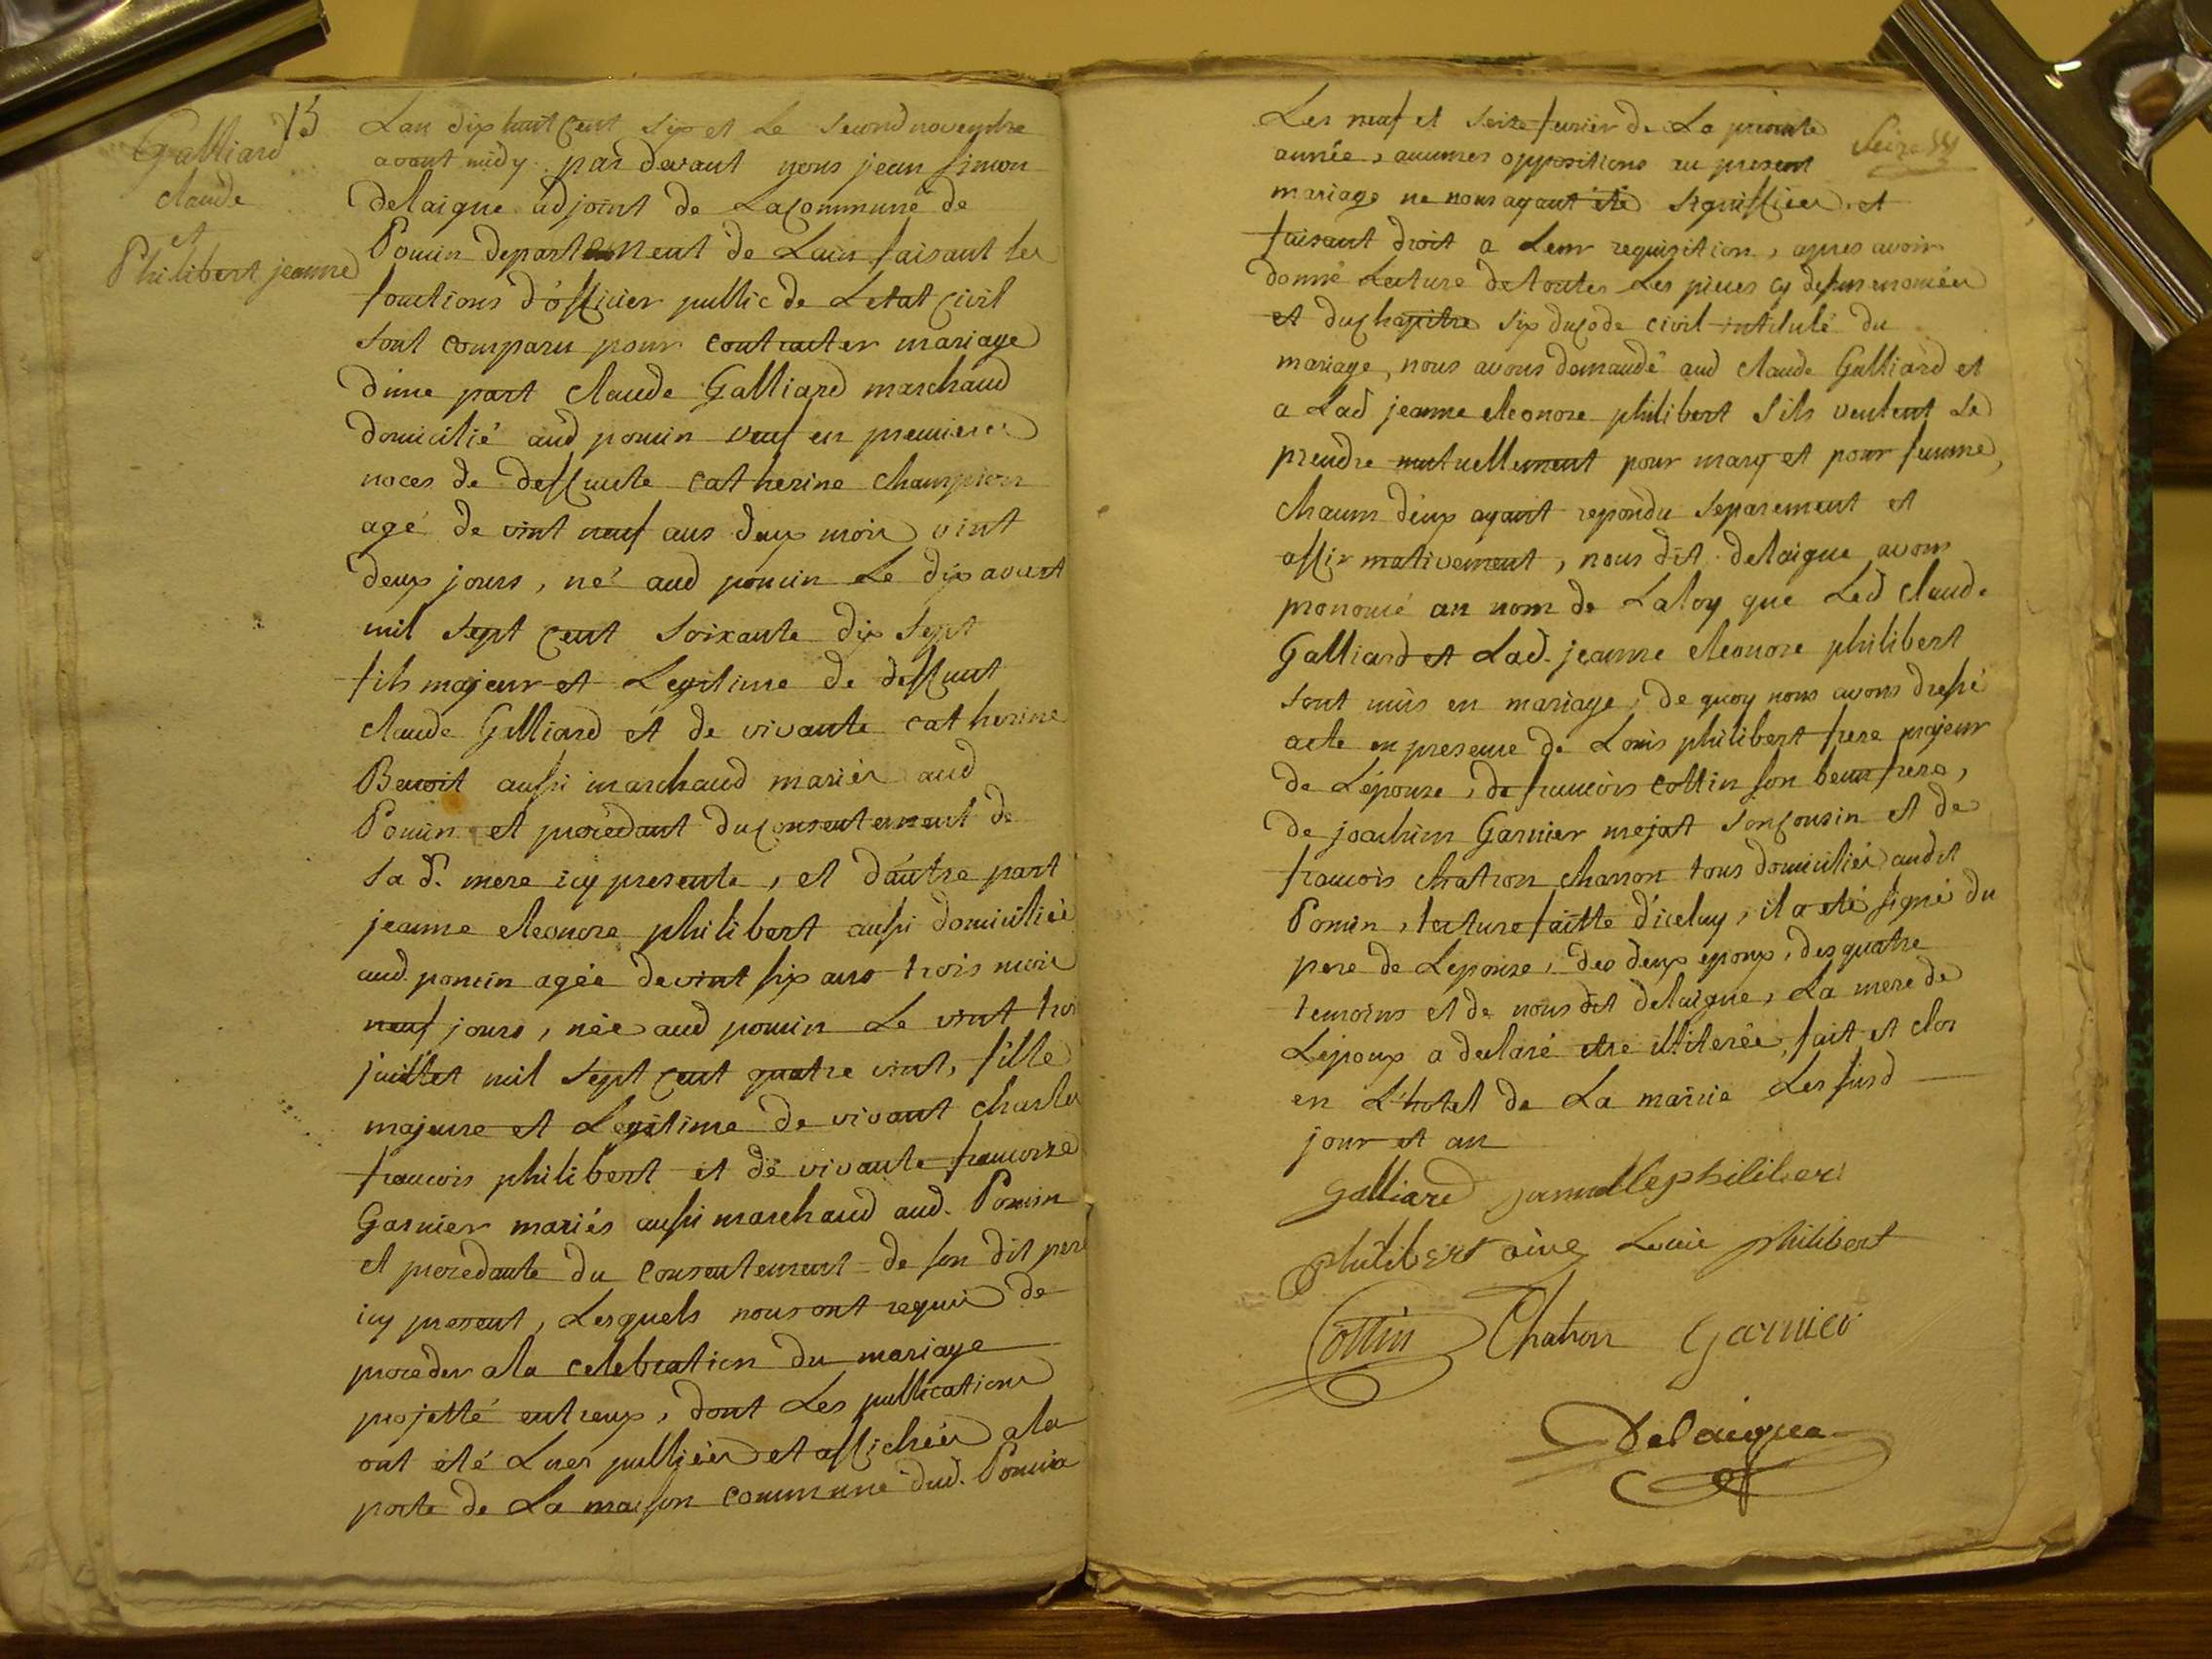 15
Galliard
claude
et
Philibert jeanne
Lan dix huit cent six et le second novembre
avant midy par devant nous jean simon
delaigue adjoint de Lacommune de
Poncin departement de Lain faisant les
fonctions d'officier public de Letat civil
sont comparu pour contracter mariage
d'une part claude Galliard marchand
domicilié aud poncin veuf en premieres
noces de deffunte catherine champion
agé de vint neuf ans deux mois vint
deux jours, né aud poncin Le dix aoust
mil sept cent soixante dix sept
fils majeur et Legitime de deffunt
claude Galliard et de vivante catherine
Benoit aussi marchand mariés aud
Poncin et procédant duconsentement de
sa d. mere icy presente, et d'autre part
jeanne eleonore philibert aussi domiciliée
aud. poncin agée devint six ans trois mois
neuf jours, née aud poncin Le vint trois
juillet mil sept cent quatre vint, fille
majeure et Legitime de vivant charles
francois philibert et de vivante francoise
Garnier mariés aussi marchand aud. Poncin
et procedante du consentement de son dit pere
icy present, Lesquels nous ont requis de
proceder ala celebration du mariage
projetté entreux, dont Les publications
ont été Lues publiées et affichées ala
porte de La maison commune dud. Poncin
Les neuf et seize fevrier de La presente
année, aucunes oppositions au present
mariage ne nous ayant été signiffiées et
faisant droit a Leur requisition, apres avoir
donné Lecture detoutes Les pieces cy dessus enoncées
et duchapitre six ducode civil intitulé du
mariage, nous avons demandé aud claude Galliard et
a Lad jeanne eleonore philibert s'ils veulent se
prendre mutuellement pour mary et pour femme,
chacun d'eux ayant repondu separement et
affirmativement, nous dit delaigue avons
prononcé au nom de Laloy que Led claude
Galliard et Lad. jeanne eleonore philibert
sont unis en mariage, de quoy nous avons dressé
acte en presence de Louis philibert frere majeur
de L'épouse, de francois cottin son beau frere,
de joachim Garnier mejat soncousin et de
francois chatron charron tous domiciliés audit
Poncin, lecture faitte d'iceluy, il a eté signé du
pere de Lepouse, des deux epoux, des quatre
temoins et de nous dit delaigue, La mere de
Lépoux a declaré etre illiterée, fait et clos
en L'hotel de La mairie Les susd
jour et an
Galliard philibert
philibert ainé Louis philibert
Cottin Chatron Garnier
Delaigue